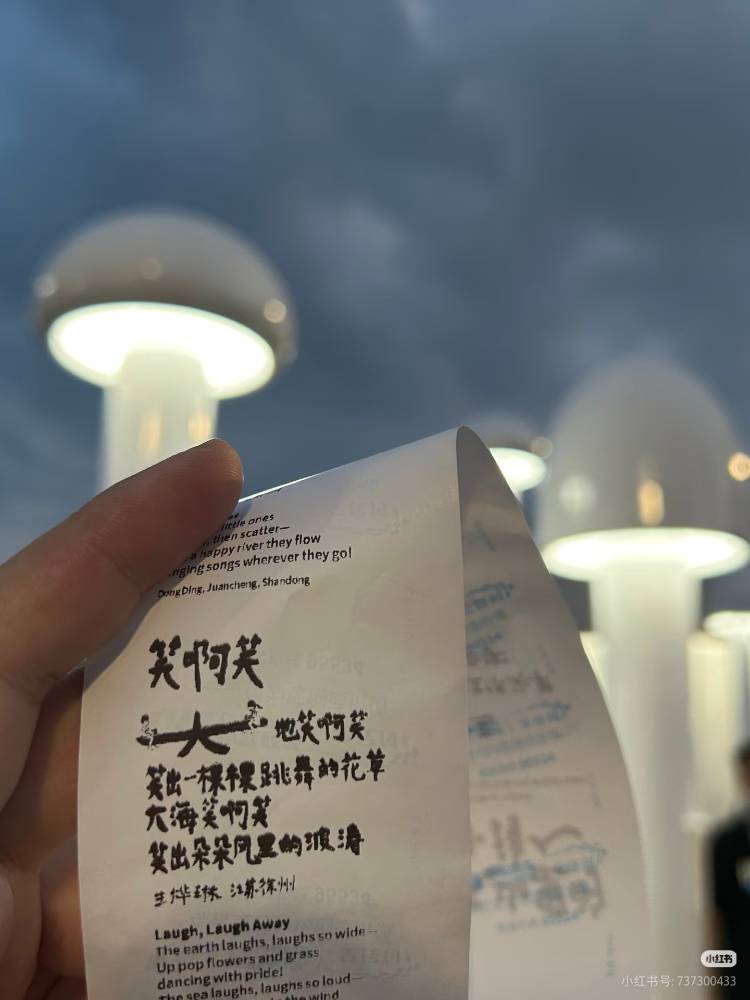 little ones
then scatter—
happy river they flow
singing songs wherever they go!
DongDing, Juancheng, Shandong
笑啊笑
大地笑啊笑
笑出一棵棵跳舞的花草
大海笑啊笑
笑出朵朵风里的波涛
王烨琳 江苏徐州
Laugh, Laugh Away
The earth laughs, laughs so wide—
Up pop flowers and grass
dancing with pride!
The sea laughs, laughs so loud—
in the wind
小红书
小红书号: 737300433